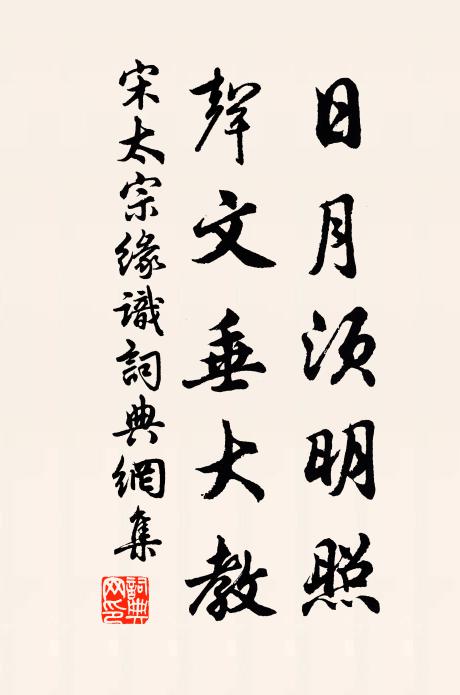 日月須明照
聲文垂大教
宋太宗緣識詞典網集
詞典网印